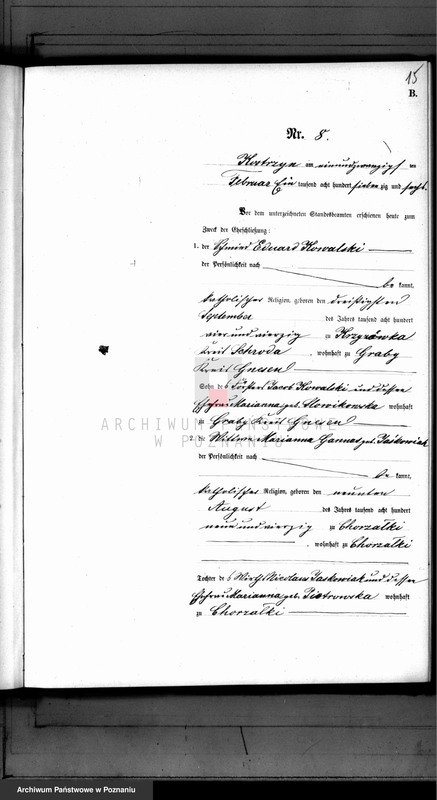 15
B.
Nr. 8.
Kostrzyn am einundzwanzigsten
Februar Ein tausend acht hundert siebenzig und sechs.
Vor dem unterzeichneten Standesbeamten erschienen heute zum
Zweck der Eheschließung:
1. der Schmied Eduard Kowalski
der Persönlichkeit nach
be kannt,
katholischer Religion, geboren den dreißigsten
September des Jahres tausend acht hundert
vierundvierzig zu
Kreis Schroda, wohnhaft zu Graby
Kreis Gnesen
Sohn des Försters Jacob Kowalski und dessen
Ehefrau Marianna geb. Slowikowska wohnhaft
zu Graby Kreis Gnesen
ARCHIWUM PAŃSTWOWE
W POZNANIU
2. die Wittwe Marianna Gannas geb. Jaskowiak
der Persönlichkeit nach
be kannt,
katholischer Religion, geboren den neunten
August des Jahres tausend acht hundert
neunundvierzig zu Chorzalki
, wohnhaft zu Chorzalki
Tochter des Wirths Nicolaus Jaskowiak und dessen
Ehefrau Marianna geb. Piotrowska wohnhaft
zu Chorzalki
Archiwum Państwowe w Poznaniu